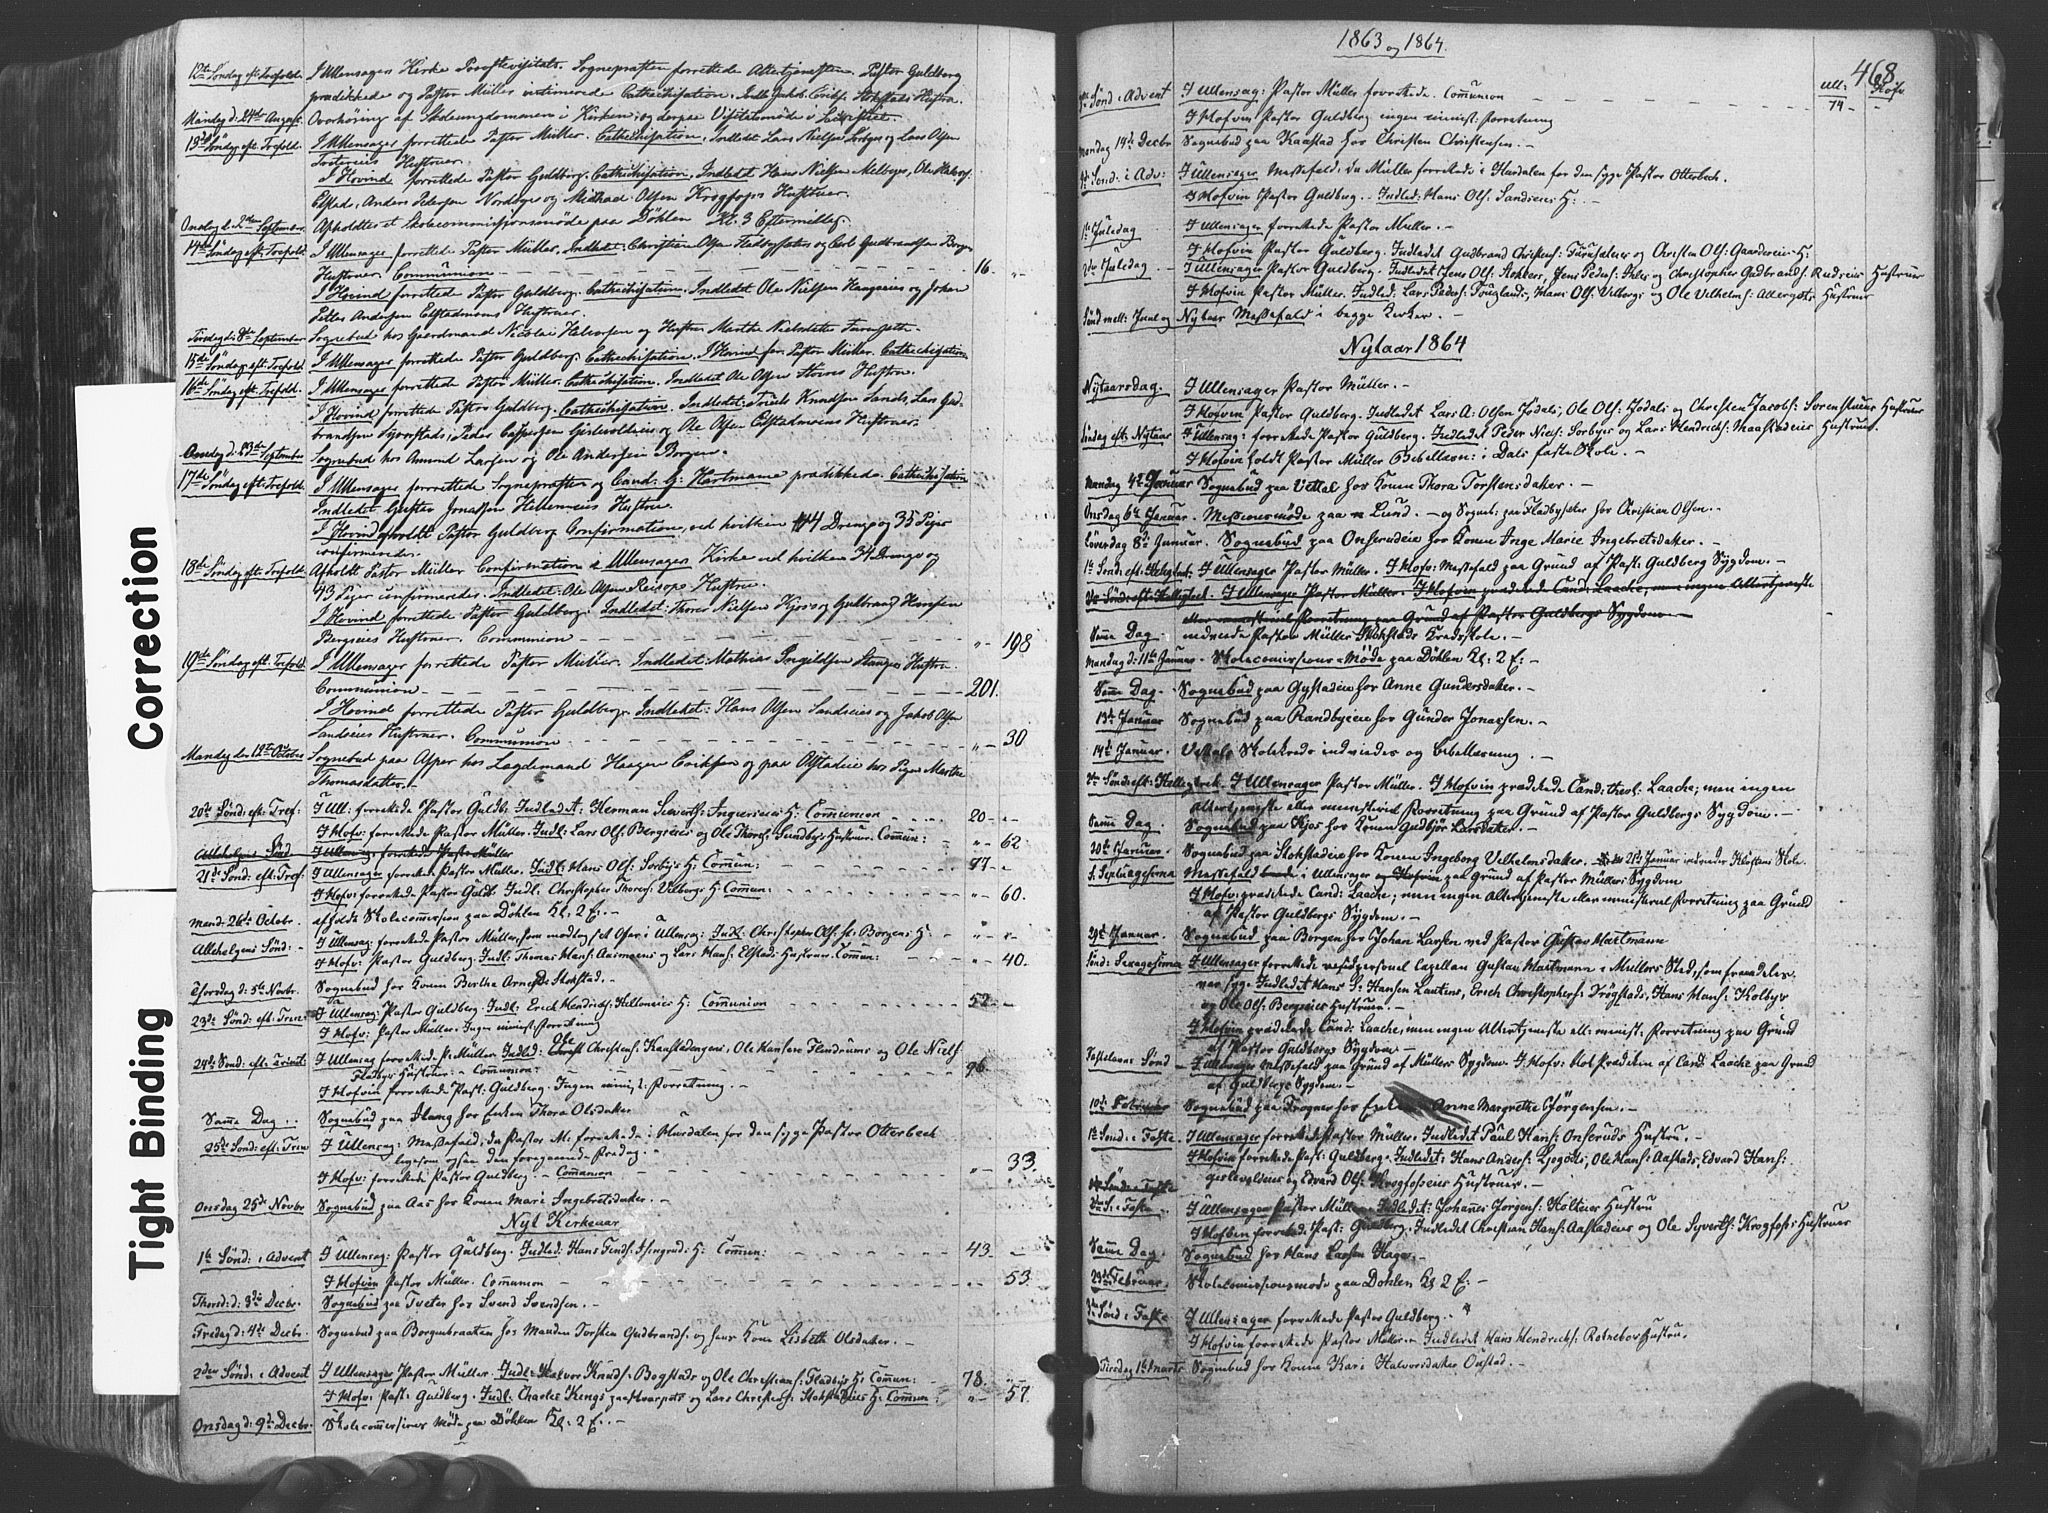 Correction
Tight Binding
12te Søndag eft. Trefold. I Ullensagers Kirke Provstevisitats. Sognepræsten forrettede Altertjenesten. Pastor Guldberg
prædikkede og Pastor Müller Cathechisation. Indledt Jakob Eriksen Stokstads Hustru
Mandag d. 24de August. Overhøring af Skoleungdommen i Kirken, og derpaa Visitatsmøde i
13de Søndag eft. Trefold. I Ullensager forrettede Pastor Müller. Cathechisation. Indledet Lars Nielsen Sorbyes og Lars Olsen
Hustruer.
I Hovind forrettede Pastor Guldberg. Cathechisation. Indledet Hans Nielsen Melbyes, Ole
Elstad, Anders Pedersen Nordbyes og Michael Olsen Krogfoss Hustruer.
Onsdag d. 2den September. Afholdtes et Skolecommissionsmøde paa Döhlen Kl. 3 Eftermiddag.
14de Søndag eft. Trefold. I Ullensager forrettede Pastor Müller. Indledet: Christian Olsen Fladbysæter og Carl Gulbrandsen Borgen
Hustruer. Communion 16. "
I Hovind forrettede Pastor Guldberg. Cathechisation. Indledet Ole Nielsen Haugseies og Johan
Petter Andersen Elstadmoens Hustruer.
Tirsdag d. 8de September Sognebud hos Gaardmand Nicolai Halvorsen og Hustru Marthe Nielsdatter Furuseth.
15de Søndag eft. Trefold. I Ullensager forrettede Pastor Guldberg. Cathechisation. I Hovind for. Pastor Müller. Cathechisation
16de Søndag eft. Trefold. I Ullensager forrettede Pastor Müller. Cathechisation. Indledet Ole Olsen Hustru.
I Hovind forrettede Pastor Guldberg. Cathechisation. Indledet: Knudsen Sands, Lars Gul-
brandsen, Peder Caspersen Gislevoldeies og Ole Olsen Elstadmoens Hustruer.
Onsdag d. 23de September Sognebud hos Amund Larsen og Ole Andersen Borgen.
17de Søndag eft. Trefold. I Ullensager forrettede Sognepræsten og Cand. G. Hartmann prædikkede. Cathechisation
Indledet Gustav Jonassen Hellemeies Hustru.
I Hovind afholdt Pastor Guldberg Confirmation, ved hvilken 44 Drenge og 35 Piger
confirmeredes.
18de Søndag eft. Trefold. Afholdt Pastor Müller Confirmation i Ullensagers Kirke ved hvilken 34 Drenge og
43 Piger confirmeredes. Indledet: Ole Olsen Hustru.
I Hovind forrettede Pastor Guldberg. Indledet: Thorer Nielsen Kjos og Gulbrand Hansen
Bergseies Hustruer. Communion " 198
19de Søndag eft. Trefold. I Ullensager forrettede Pastor Müller. Indledet: Mathias Ingildsen Stanges Hustru
Communion 201.
I Hovind forrettede Pastor Guldberg. Indledet: Hans Olsen Sandseies og Jakob Olsen
Sandseies Hustruer. Communion " 30
Mandag den 12te October Sognebud paa Asper hos Lægdemand Haagen Eriksen og paa Olstadeie hos Pigen Marthe
Thomasdatter.
20de Sønd: eft: Tref: I Ull: forrettede Pastor Guldb: Indledt: Herman Siverts: Ingierseies H: Communion 20 "
I Hofv: forrettede Pastor Müller. Indl: Lars Ols: Bergseies og Ole Thors: Sundbys Hustruer. Commun: " 62
Allehelgens Sønd I Ullensag: forrettede Pastor Müller
21de Sønd: eft: Tref: I Ullensager forrettede Pastor Müller. Indl: Hans Ols: Sorbyes H: Commun: 77 "
I Hofv: forrettede Pastor Guldb. Indl: Christopher Thorers: Vilbergs H: Commun: " 60.
Mand: 26de Octobr. afholdt Skolecommission paa Döhlen Kl. 2 E:
Allehelgens Sønd: I Ullensag: forrettede Pastor Müller, som modtog set Ofer i Ullensag: Indl: Christopher Ols: fr Borgens H: " "
I Hofv: Pastor Guldberg. Indl: Thomas Hans: Aasmoens og Lars Hans: Elstads Hustruer. Commun: " 40.
Thorsdag d: 5te Novbr. Sognebud hos Konen Berthe Arnesd: Stokstad.
23de Sønd: eft: Trin: I Ullensag: Pastor Guldberg. Indl: Erich Hendrichs: Hellemeies H: Communion 52 "
I Hofv: Pastor Müller. Ingen minist: Forretning
24de Sønd: eft: Trinit I Ullensag forrettede P: Müller. Indled: Ole Christens: Kaastadengens, Ole Hansens Flendrums og Ole Niels:
Fladbys Hustruer. Communion: 96
I Hofvin forrettede Past: Guldberg. Ingen minist: Forretning.
Samme Dag. Sognebud paa Haug hos Enken Thora Olsdatter
25de Sønd: eft: Trin I Ullensag: Messefald; da Pastor M: forrettede i Hurdalen for den syge Pastor Otterbech
ligesom ogsaa den foregaaende Fredag.
I Hofv: forrettede Pastor Guldberg. Communion " 33.
Onsdag 25de Novbr Sognebud paa Aas hos Konen Mari Ingebretsdatter.
Nyt Kirkeaar
1te Sønd: i Advent I Ullensag: Pastor Guldberg. Indled: Hans H: Commun: 43.
I Hofvin Pastor Müller. Communion " 53
Thorsd: d: 3die Decbr. Sognebud paa Tveter hos Svend Svendsen.
Fredag d: 4de Decbr. Sognebud paa Borgenbraaten hos Manden Torsten Gudbrands: og hans Kone Lisbeth Olsdatter.
2den Sønd: i Advent I Ullensager Pastor Müller. Indl: Halvor Knuds: Bogstads og Ole Christians: Fladbys H: Commun: 78. "
I Hofv: Past: Guldberg. Indl: Charles Kings paa og Lars Christens: Stokstadeies H: Commun: " 57.
Onsdag d: 9de Decbr. Skolecommissions Møde paa Döhlen Kl: 2 E.
1863 og 1864.
468
Ull: Hofv
Sønd: i Advent I Ullensag: Pastor Müller forrettede. Communion 74
I Hofvin Pastor Guldberg ingen minist: Forretning
Mandag 14de Decbr Sognebud paa Kaastad hos Christen Christensen.
4de Sønd: i Adv: I Ullensager Messefald; da Müller forrettede i Hurdalen for den syge Pastor Otterbech.
I Hofvin Pastor Guldberg. Indled: Hans Ols: Sandseies H:
1te Juledag I Ullensager forrettede Pastor Müller.
I Hofvin Pastor Guldberg. Indledet Gudbrand Christens: Furusæters og Christen Ols: Gaardereies H:
2den Juledag I Ullensager Pastor Guldberg. Indledet Jens Ols: Askers, Jens Peders: og Christopher Gudbrands: Rudseies Hustruer
I Hofvin Pastor Müller. Indled: Lars Peders: Fouglands, Hans Ols: Vilbergs og Ole Vilhelms: Algergots Hustruer
Sønd mell: Juul og Nytaar Messefald i begge Kirker.
Nytaar 1864
Nytaarsdag. I Ullensager Pastor Müller.
I Hofvin Pastor Guldberg. Indledet Lars A: Olsen Jødals, Ole Ols: Jodals og Christen Jacobs: Sorenstuens Hustruer
Søndag eft: Nytaar I Ullensag: forrettede Pastor Guldberg. Indledet Peder Niels: Sorbyes og Lars Hendrichs: Maastadeies Hustruer.
I Hofvin holdt Pastor Müller Bibellæsn: i Dals faste Skole.
Mandag 4de Januar Sognebud paa Vettal hos Konen Thora Torstensdatter.
Onsdag 6te Januar. Missionsmøde paa Lund. og Sogneb: paa Fladbysæter hos Christian Olsen.
Löverdag 8de Januar. Sognebud paa Onserudeie hos Konen Inge Marie Ingebretsdatter.
1te Sønd: eft: I Ullensager Pastor Müller. I Hofv: Messefald paa Grund af Past: Guldbergs Sygdom.
I Ullensager Pastor Müller. I Hofvin prædikede Cand: Laache, men ingen Altertjeneste
eller ministeriel Forretning paa Grund af Pastor Guldbergs Sygdom
Samme Dag indviede Pastor Müller Stokstads Kredsskole.
Mandag d: 11te Januar Skolecomissions-Møde paa Döhlen Kl: 2 E:
Samme Dag. Sognebud paa Gystadeie hos Anne Gundersdatter.
13de Januar Sognebud paa Randbyeie hos Gunder Jonassen.
14de Januar. Vettals Skolekreds indviedes og Bibellæsning.
2den Sønd: eft: Hellig3k. I Ullensager Pastor Müller. I Hofvin prædikede Cand: theol. Laache; men ingen
Altertjeneste eller ministeriel Forretning paa Grund af Pastor Guldbergs Sygdom.
Samme Dag Sognebud paa Kjos hos Konen Gudbjör Larsdatter.
20de Januar. Sognebud paa Stokstadeie hos Konen Ingeborg Vilhelmsdatter. Den 21de Januar indviedes Kløftens Skole
S. Septuagesima Messefald i Ullensager paa Grund af Pastor Müllers Sygdom
I Hofv: prædikede Cand: Laache; men ingen Altertjeneste eller ministeriel Forretning paa Grund
af Pastor Guldbergs Sygdom.
29de Januar. Sognebud paa Borgen hos Johan Larsen ved Pastor Gustav Hartmann
Sønd: Sexagesima I Ullensager forrettede resid: personel Capellan Gustav Hartmann i Müllers Sted, som fremdeles
var syg. Indledet Hans L: Hansen Lautens, Erich Christophers: Trøgstads, Hans Hans: Kolbys
og Ole Ols: Bergseies Hustruer.
I Hofvin prædikede Cand: Laache, men ingen Altertjeneste ell: minist. Forretning paa Grund
af Pastor Guldbergs Sygdom
Fastelavns Sønd I Ullensager Messefald paa Grund af Müllers Sygdom. I Hofv: blot Prædiken af Cand Laache paa Grund
af Guldbergs Sygdom.
10de Februar Sognebud paa Frogner hos Anne Margrethe Jörgensen.
1te Sønd: i Faste I Ullensager forrettede Pastor Müller. Indledet Paul Hans: Onseruds Hustru.
I Hofvin forrettede Past: Guldberg. Indledet: Hans Anders: Ljøgodts, Ole Hans: Aastads, Edvard Hans:
Gislevoldeies og Edvard Ols: Krogfosseies Hustruer.
2den S. i Faste I Ullensager Pastor Müller. Indledet: Johannes Jorgens: Holtenes Hustru
I Hofvin forrettede Past: Guldberg. Indledet Christian Hans: Aastadeies og Ole Syverts: Krogfos's Hustruer
Samme Dag Sognebud hos Hans Larsen Hage.
23de Februar. Skolecomissionsmøde paa Döhlen Kl 2 E:
3de Sønd i Faste I Ullensager forrettede Pastor Guldberg.
I Hofvin forrettede Pastor Müller Indledet Hans Hendrichs: Rotnebor Hustru.
Tirsdag 1te Marts Sognebud hos Konen Kari Halvorsdatter Onstad.